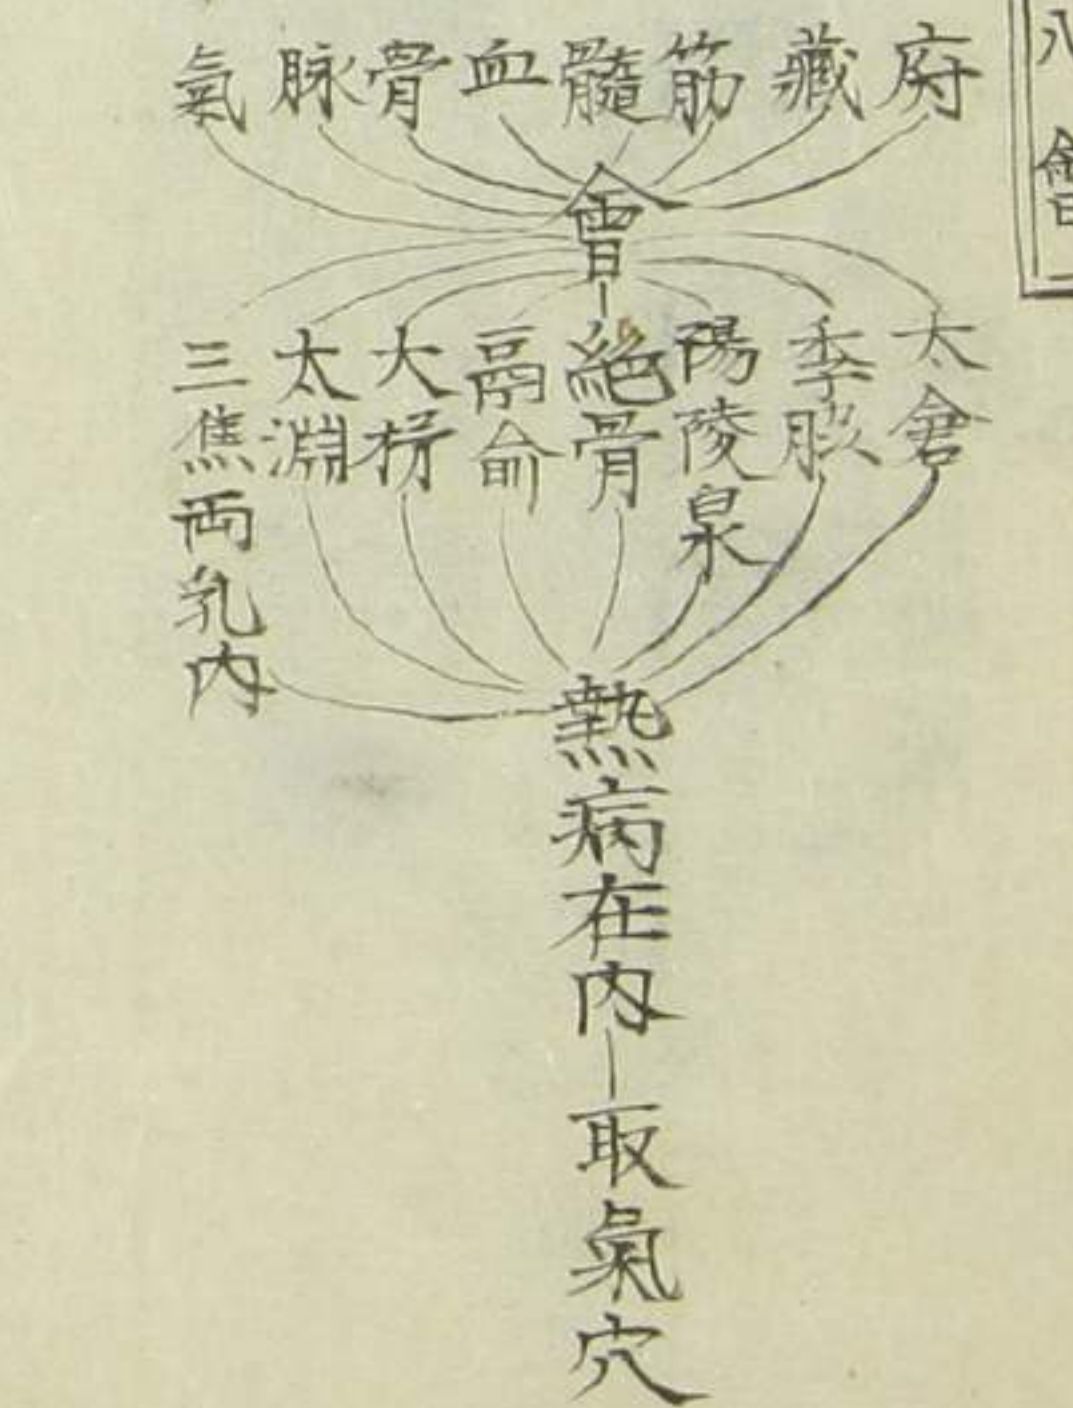 八會
府
藏
筋
髓
血
骨
脉
氣
會
太倉
季脇
陽陵泉
絕骨
鬲俞
大杼
太淵
三焦両乳内
熱病在内
取氣穴